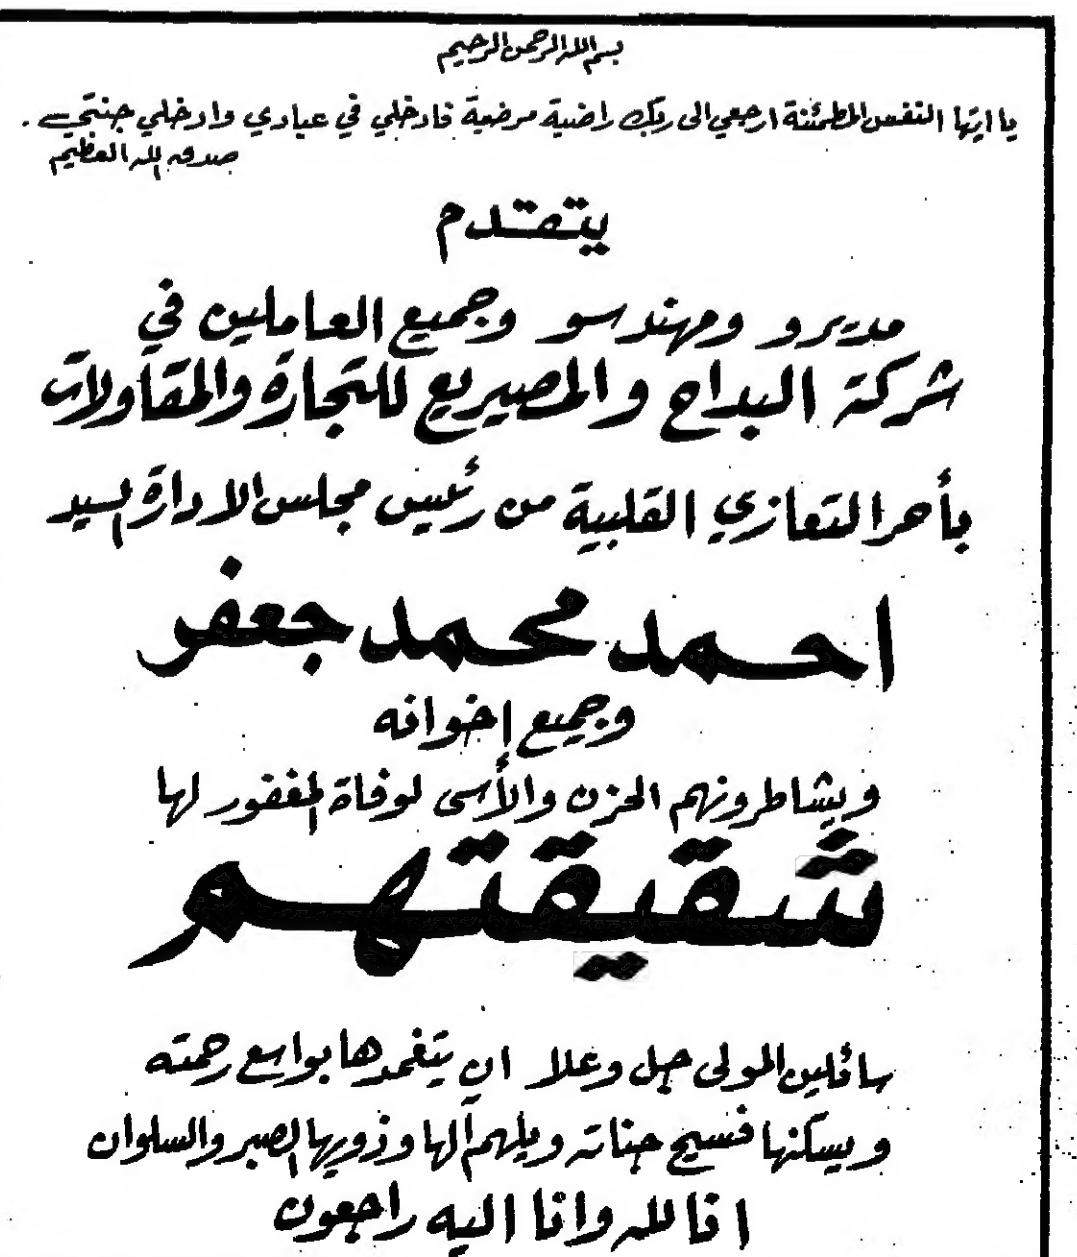 بسم الله الرحمن الرحيم
يا ايتها النفس المطمئنة ارجعي الى ربك راضية مرضية فادخلي في عبادي وادخلي جنتي .
صدق الله العظيم
يتقدم
مديرو ومهندسو وجميع العاملين في
شركة البداح والمصيريع للتجارة والمقاولات
بأحر التعازي القلبية من رئيس مجلس الادارة السيد
احمد محمد جعفر
وجميع إخوانه
ويشاطرونهم الحزن والأسى لوفاة المغفور لها
شقيقتهم
سائلين المولى جل وعلا ان يتغمدها بواسع رحمته
ويسكنها فسيح جناته ويلهم آلها وذويها الصبر والسلوان
انا لله وانا اليه راجعون